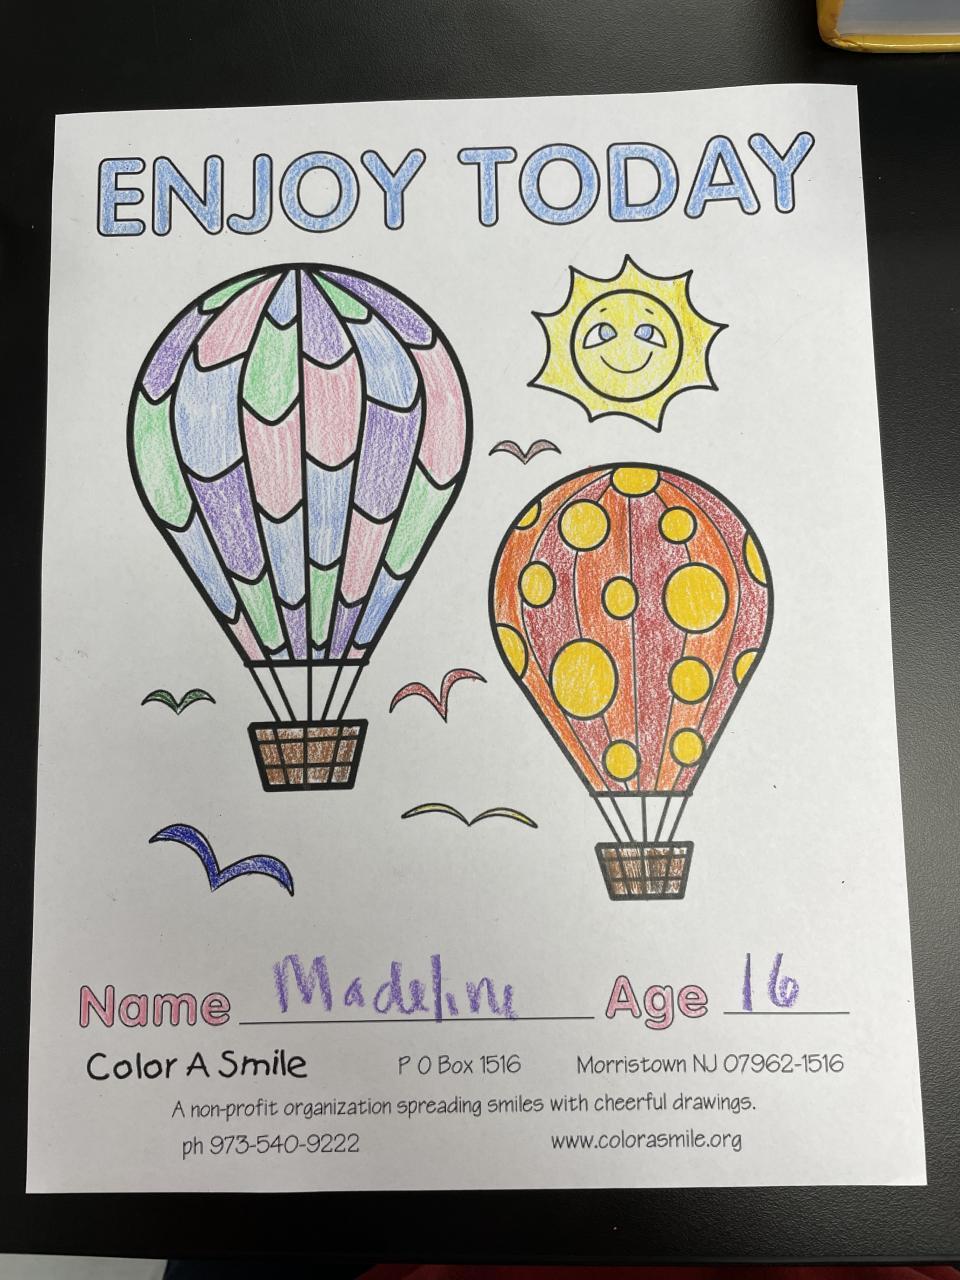 ENJOY TODAY
Name Madeline Age 16
Color A Smile P O Box 1516 Morristown NJ 07962-1516
A non-profit organization spreading smiles with cheerful drawings.
ph 973-540-9222 www.colorasmile.org